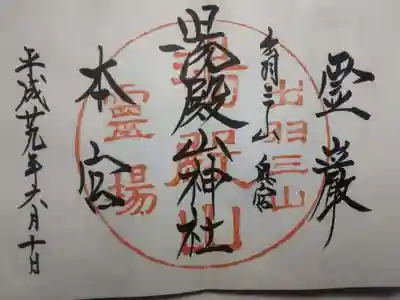 霊巌
出羽三山奥宮
湯殿山神社
本宮
平成廿九年六月十日
出羽三山
湯殿山
靈場